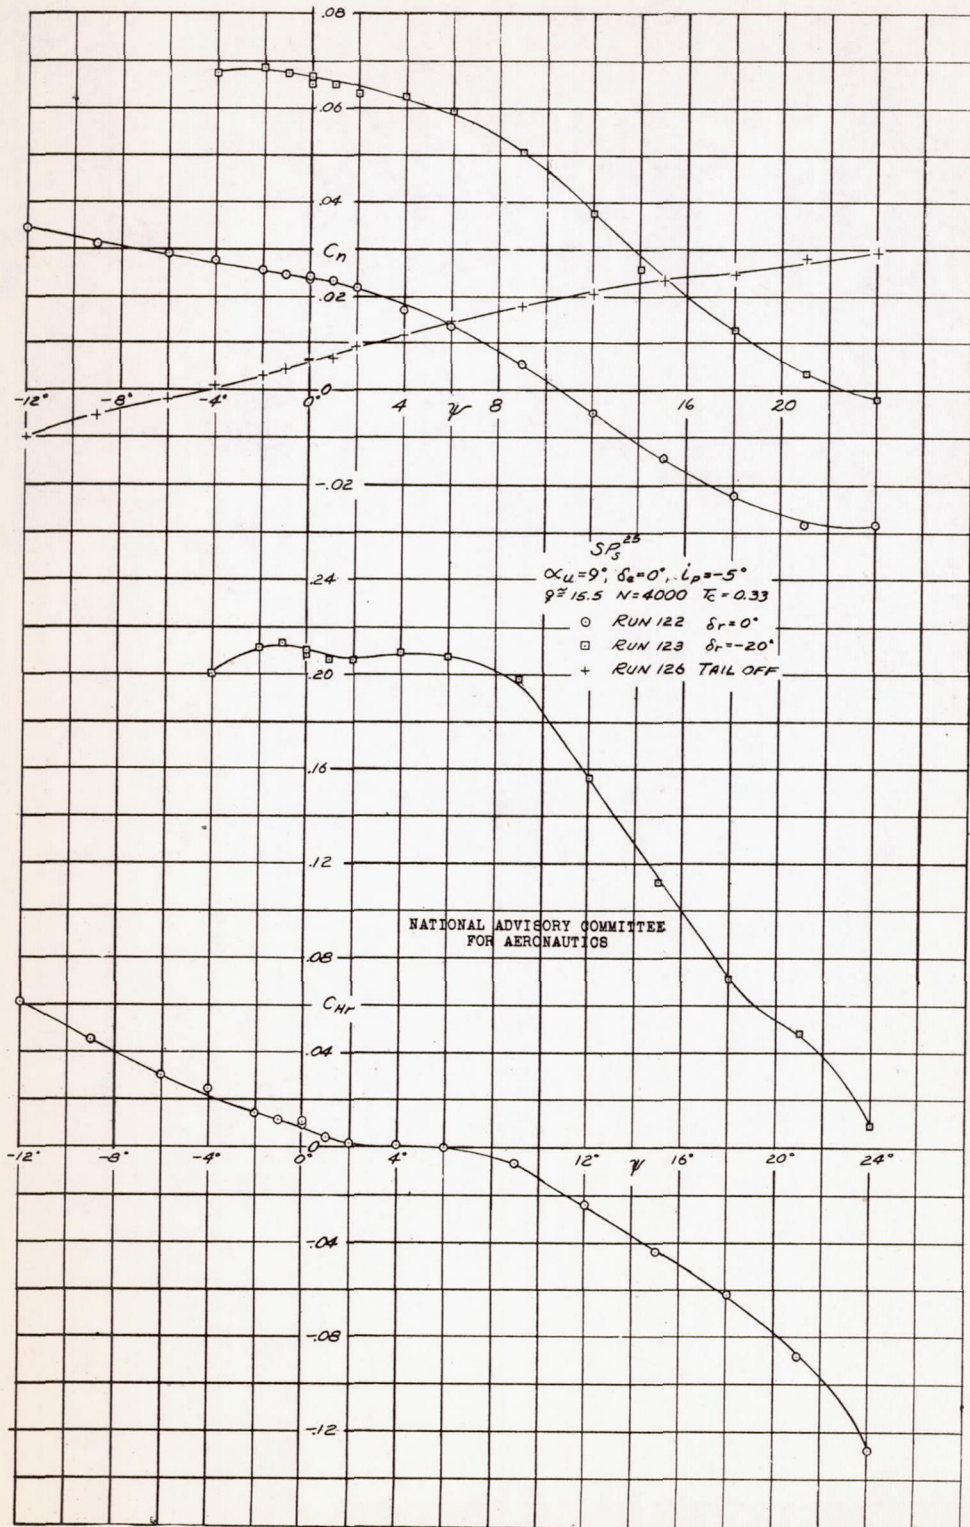 .08
.06
.04
Cn
.02
0
-12° -8° -4° 0° 4 ψ 8 12 16 20
-.02
SPs²⁵
αu=9°, δe=0°, ip=-5°
q≅15.5 N=4000 Tc=0.33
⊙ RUN 122 δr=0°
⊡ RUN 123 δr=-20°
+ RUN 126 TAIL OFF
.24
.20
.16
.12
NATIONAL ADVISORY COMMITTEE
FOR AERONAUTICS
.08
CHr
.04
0
-12° -8° -4° 0° 4° 12° ψ 16° 20° 24°
-.04
-.08
-.12